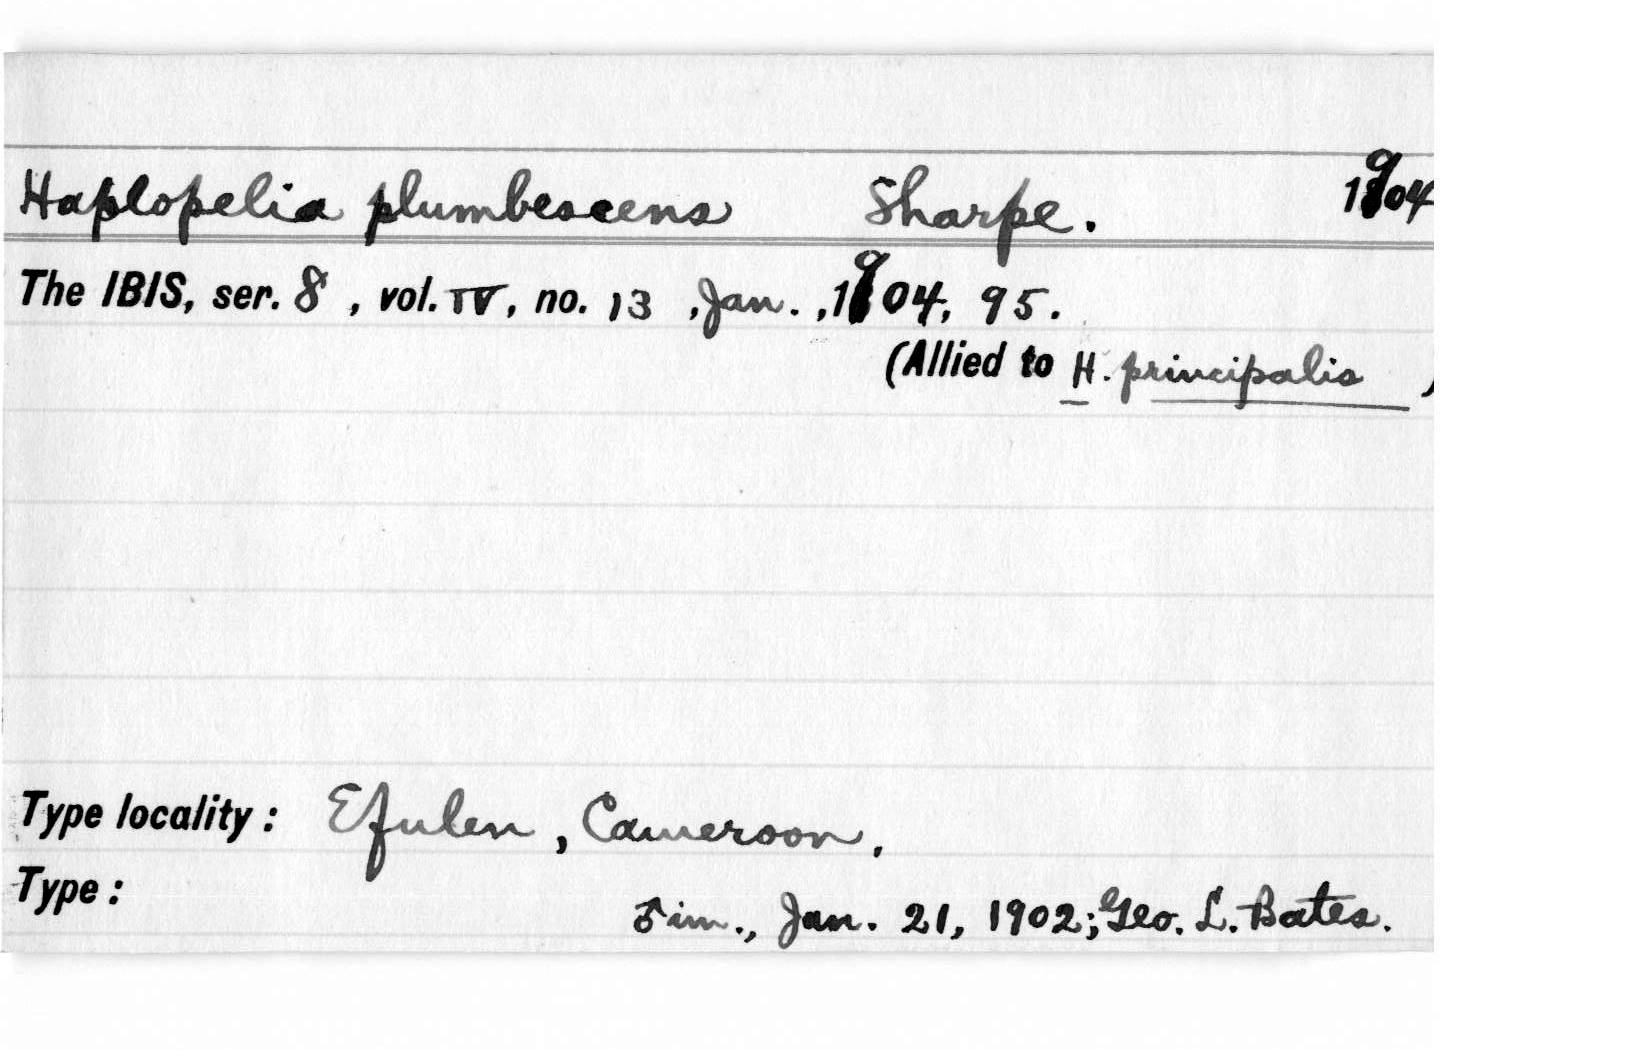 Haplopelia plumbescens Sharpe. 1904
The IBIS, ser. 8, vol. IV, no. 13, Jan., 1904, 95.
(Allied to H. principalis )
Type locality: Efulen, Cameroon.
Type:
♂ im., Jan. 21, 1902; Geo. L. Bates.